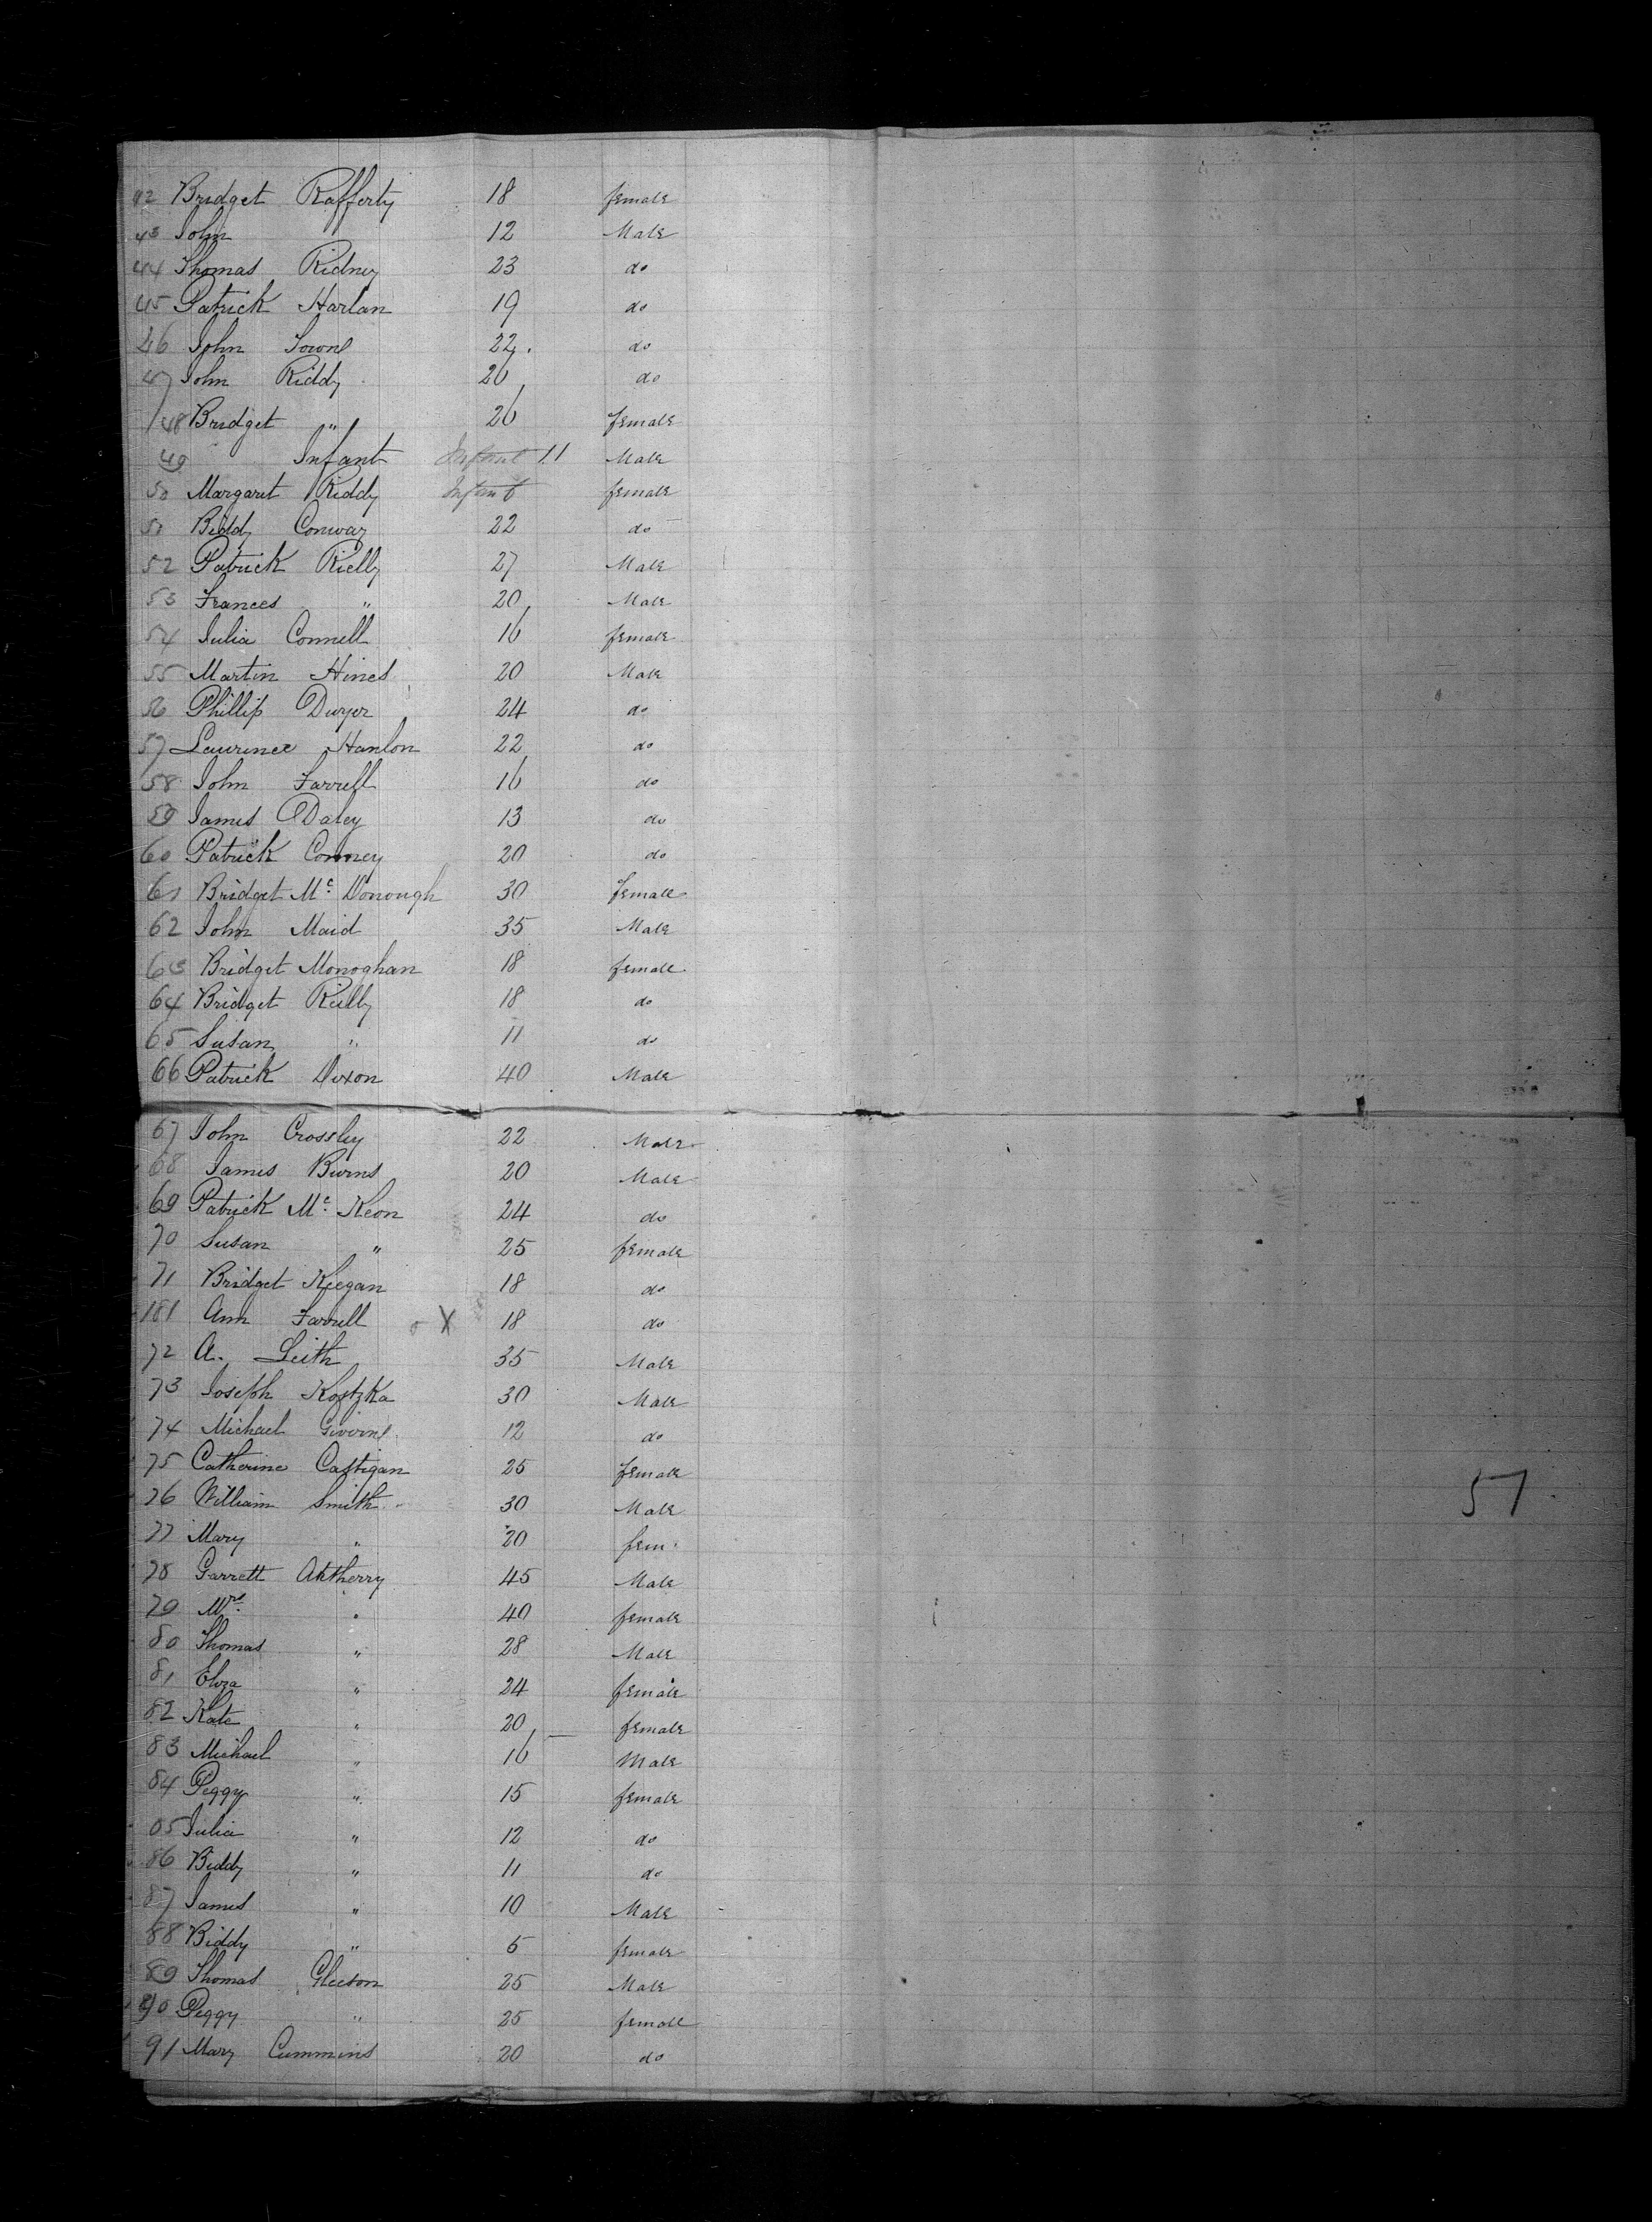 42 Bridget Rafferty 18 female
43 John 12 Male
44 Thomas Ridney 23 do
45 Patrick Harlan 19 do
46 John Towne 22 do
47 John Riddy 26 do
48 Bridget " 26 female
49 Infant Infant 11 Male
50 Margaret Riddy Infant female
51 Biddy Conway 22 do
52 Patrick Rielly 27 Male
53 Frances " 20 Male
54 Julia Connell 16 female
55 Martin Hines 20 Male
56 Phillip Dwyer 24 do
57 Laurence Hanlon 22 do
58 John Farrell 16 do
59 James Daley 13 do
60 Patrick Conney 20 do
61 Bridget Mc Donough 30 female
62 John Maid 35 Male
63 Bridget Monoghan 18 female
64 Bridget Reilly 18 do
65 Susan " 11 do
66 Patrick Dixon 40 Male
67 John Crossley 22 Male
68 James Burns 20 Male
69 Patrick Mc Keon 24 do
70 Susan " 25 female
71 Bridget Keegan 18 do
181 Ann Farrell X 18 do
72 A. Leith 35 Male
73 Joseph Kostzka 30 Male
74 Michael 12 do
75 Catherine Castigan 25 female
76 William Smith 30 Male
77 Mary " 20 fem.
78 Garrett Aktherry 45 Male
79 Mrs " 40 female
80 Thomas " 28 Male
81 Eliza " 24 female
82 Kate " 20 female
83 Michael " 16 Male
84 Peggy " 15 female
85 Julia " 12 do
86 Biddy " 11 do
87 James " 10 Male
88 Biddy " 5 female
89 Thomas Gleeson 25 Male
90 Peggy " 25 female
91 Mary Cummins 20 do
57